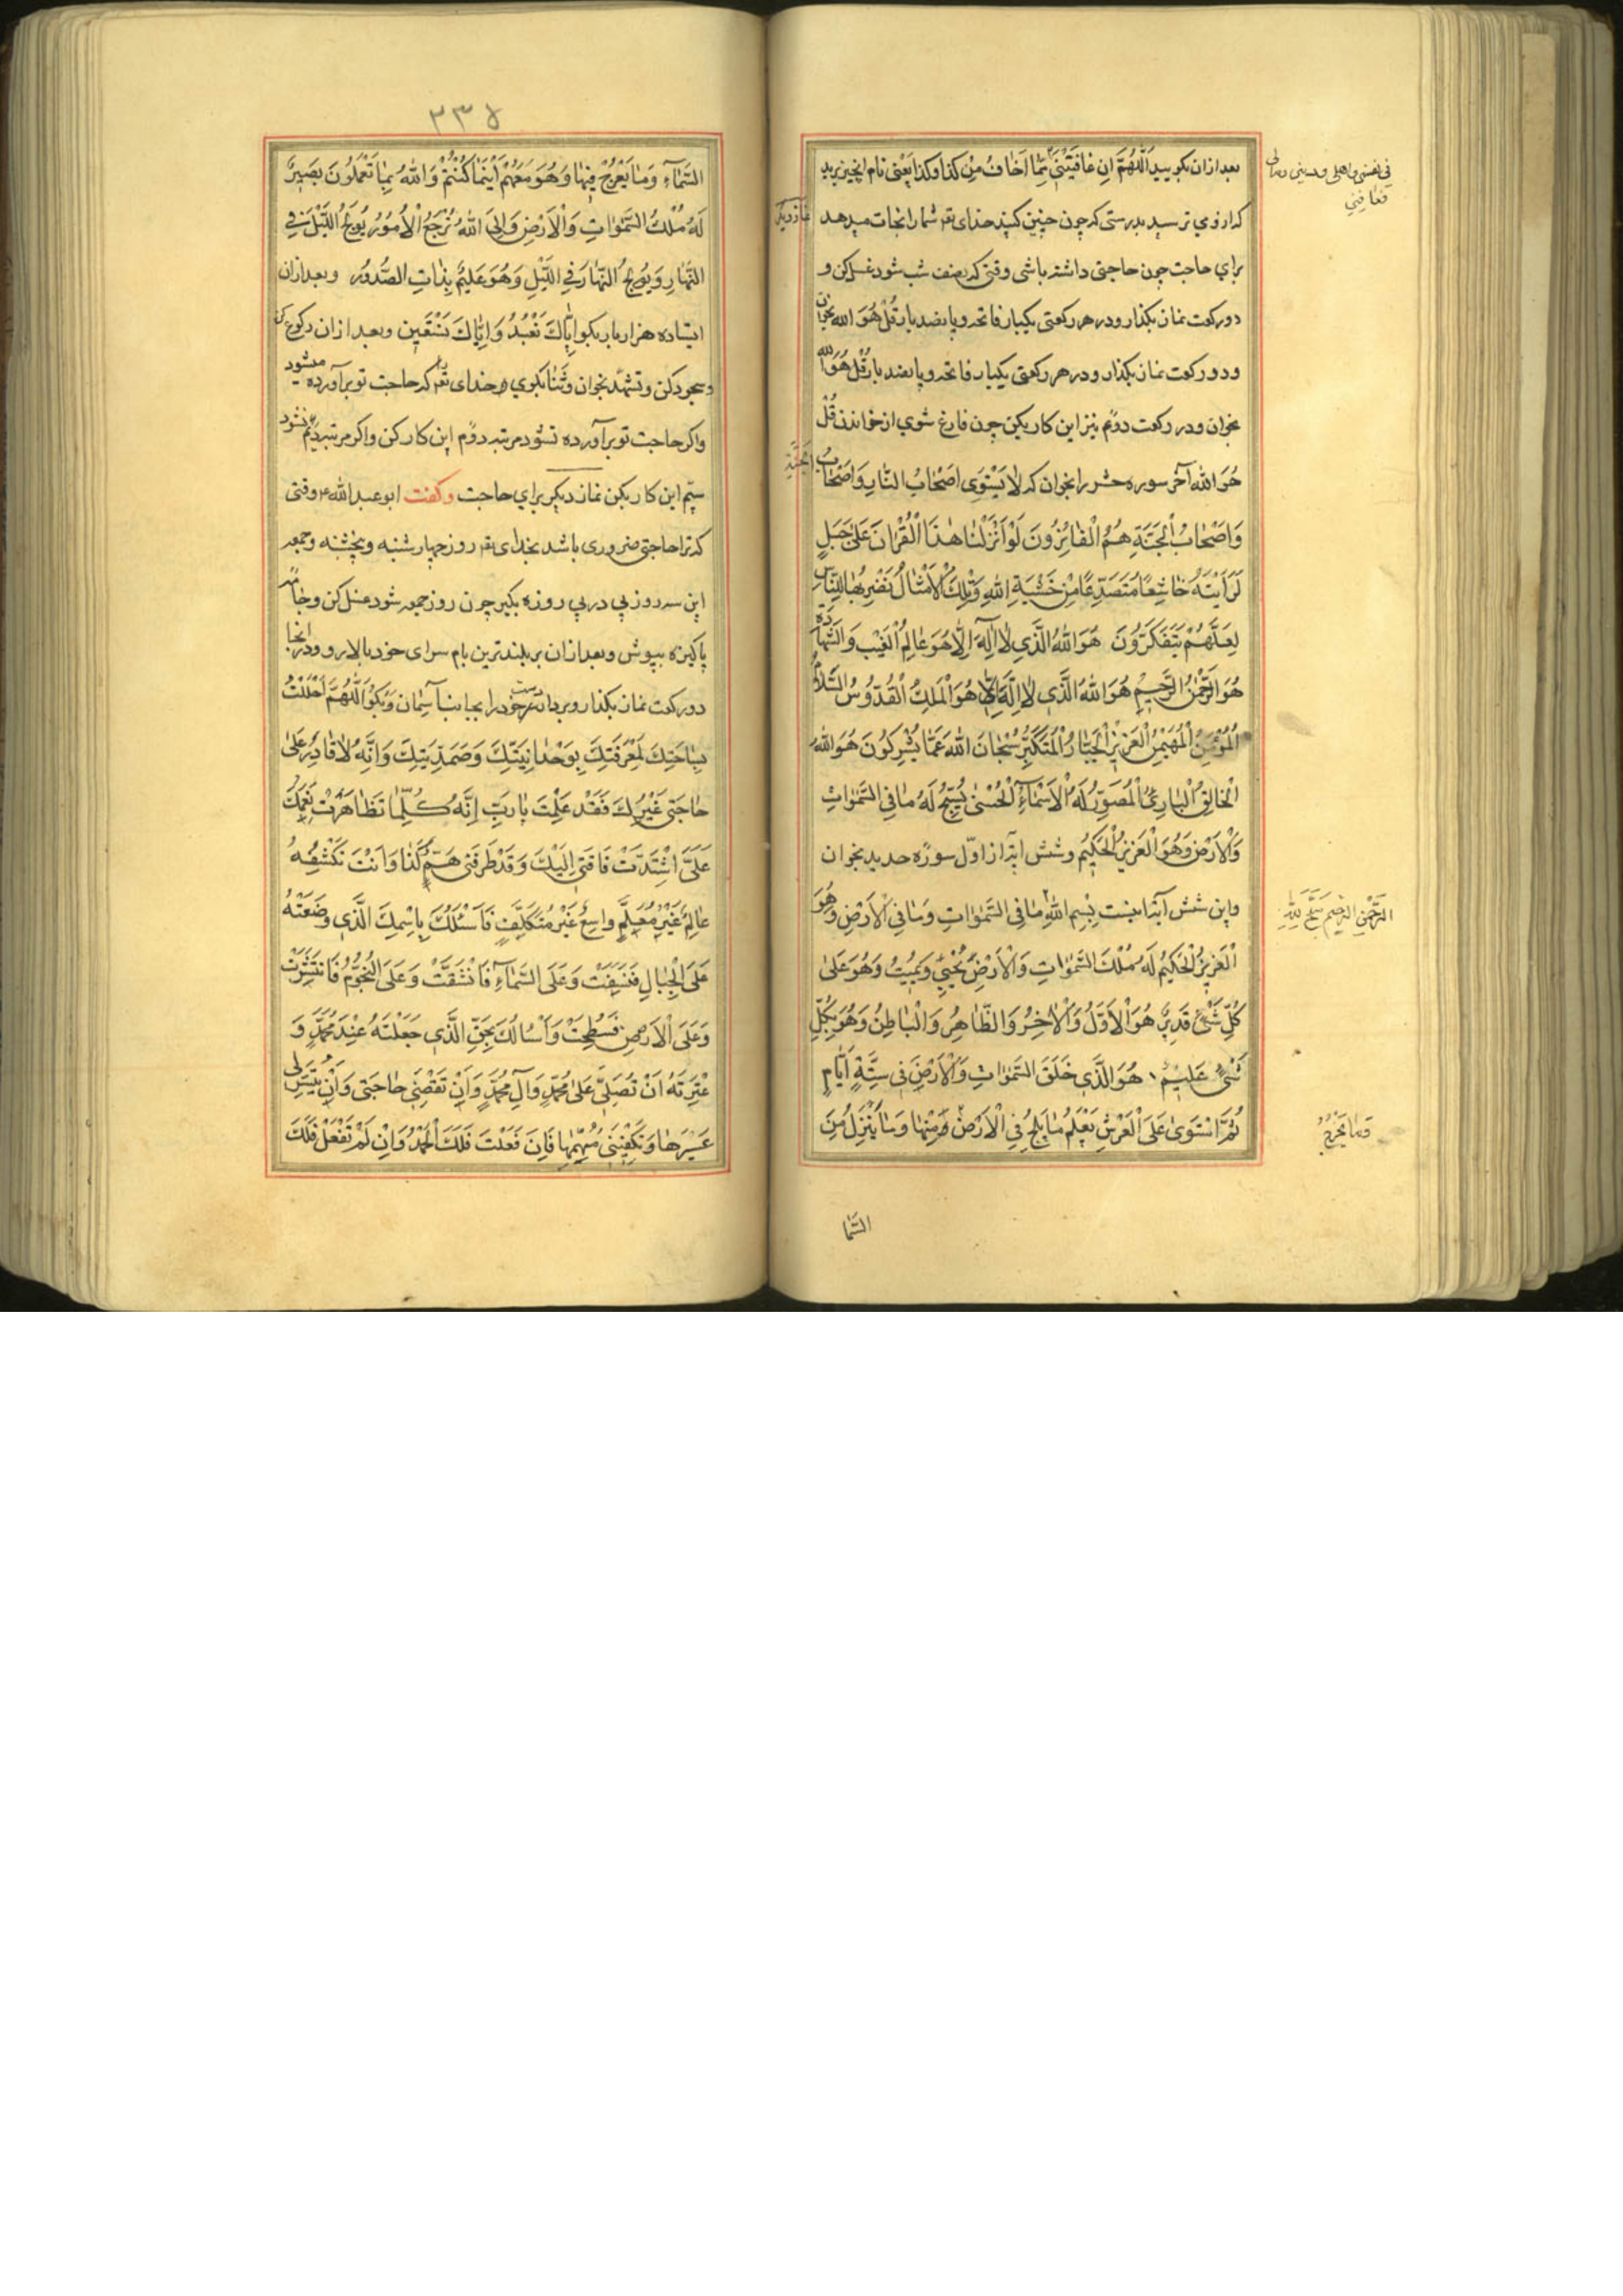 بعد ازان بکویید اَللّٰهُمَّ اِن عٰافَیْتَنٖی مِمّٰا اَخٰافُ مِنْ کَذٰا وَکَذٰا یَعْنی نام انچیز برید
که ازوی ترسید بدرستی که چون چنین کنید خدای تعـ شما را نجات میدهد
نماز دیکر
برای حاجت چون حاجتی داشته باشی وقتی که نصف شب شود غسل کن و
دو رکعت نماز بکذار و در هر رکعتی یکبار فاتحه و پانصد بار قُلْ هُوَ اللّٰه بخوان
و دو رکعت نماز بکذار و در هر رکعتی یکبار فاتحه و پانصد بار قُلْ هُوَ اللّٰه
بخوان و در رکعت دوّم نیز این کار بکن چون فارغ شوی از خواندن قُلْ
هُوَ اللّٰه آخر سوره حشر را بخوان که لٰا یَسْتَوٖی اَصْحٰابُ النّٰارِ وَاَصْحٰابُ الْجَنَّةِ
وَاَصْحٰابُ الْجَنَّةِ هُمُ الْفٰائِزُونَ لَوْ اَنْزَلْنٰا هٰذَا الْقُرْانَ عَلیٰ جَبَلٍ
لَرَاَیْتَهُ خٰاشِعًا مُتَصَدِّعًا مِنْ خَشْیَةِ اللّٰهِ وَتِلْكَ الْاَمْثٰالُ نَضْرِبُهٰا لِلنّٰاسِ
لَعَلَّهُمْ یَتَفَکَّرُونَ هُوَ اللّٰهُ الَّذٖی لٰا اِلٰهَ اِلّٰا هُوَ عٰالِمُ الْغَیْبِ وَالشَّهٰادَةِ
هُوَ الرَّحْمٰنُ الرَّحیٖمُ هُوَ اللّٰهُ الَّذٖی لٰا اِلٰهَ اِلّٰا هُوَ الْمَلِكُ الْقُدُّوسُ السَّلٰامُ
الْمُؤْمِنُ الْمُهَیْمِنُ الْعَزیٖزُ الْجَبّٰارُ الْمُتَکَبِّرُ سُبْحٰانَ اللّٰهِ عَمّٰا یُشْرِکُونَ هُوَ اللّٰهُ
الْخٰالِقُ الْبٰارِیُٔ الْمُصَوِّرُ لَهُ الْاَسْمٰٓاءُ الْحُسْنٰی یُسَبِّحُ لَهُ مٰا فِی السَّمٰوٰاتِ
وَالْاَرْضِ وَهُوَ الْعَزیٖزُ الْحَکیٖمُ و شش ایٓة از اوّل سوره حدید بخوان
و این شش آیة اینست بِسْمِ اللّٰهِ مٰا فِی السَّمٰوٰاتِ وَمٰا فِی الْاَرْضِ وَهُوَ
الرَّحْمٰنِ الرَّحیٖمِ سَبَّحَ لِلّٰهِ
الْعَزیٖزُ الْحَکیٖمُ لَهُ مُلْكُ السَّمٰوٰاتِ وَالْاَرْضِ یُحْیٖی وَیُمیٖتُ وَهُوَ عَلیٰ
کُلِّ شَیْءٍ قَدیٖرٌ هُوَ الْاَوَّلُ وَالْاٰخِرُ وَالظّٰاهِرُ وَالْبٰاطِنُ وَهُوَ بِکُلِّ
شَیْءٍ عَلیٖمٌ هُوَ الَّذٖی خَلَقَ السَّمٰوٰاتِ وَالْاَرْضَ فٖی سِتَّةِ اَیّٰامٍ
ثُمَّ اسْتَوٰی عَلَی الْعَرْشِ یَعْلَمُ مٰا یَلِجُ فِی الْاَرْضِ مِنْهٰا وَمٰا یَنْزِلُ مِنَ
وَمٰا یَخْرُجُ
السَّمٰا
٢٣٨
السَّمٰٓاءِ وَمٰا یَعْرُجُ فٖیهٰا وَهُوَ مَعَهُمْ اَیْنَمٰا کُنْتُمْ وَاللّٰهُ بِمٰا تَعْمَلُونَ بَصیٖرٌ
لَهُ مُلْكُ السَّمٰوٰاتِ وَالْاَرْضِ وَاِلَی اللّٰهِ تُرْجَعُ الْاُمُورُ یُولِجُ اللَّیْلَ فِی
النَّهٰارِ وَیُولِجُ النَّهٰارَ فِی اللَّیْلِ وَهُوَ عَلیٖمٌ بِذٰاتِ الصُّدُورِ و بعد ازان
ایستاده هزار بار بکو اِیّٰاكَ نَعْبُدُ وَاِیّٰاكَ نَسْتَعیٖن و بعد ازان رکوع کن
و سجود کن و تشهّد بخوان و ثنا بکوی خدای تعـ که حاجت تو برآورده میشود
و اکر حاجت تو برآورده نشود مرتبه دوّم این کار کن و اکر مرتبه دوّم نشود
سیّم این کار بکن نماز دیکر برای حاجت و کفت ابو عبد اللّٰه ع وقتی
که ترا حاجتی ضروری باشد بخدای تعـ روز چهارشنبه و پنجشنبه و جمعه
این سه روز پی در پی روزه بکیر چون روز جمعه شود غسل کن و جامه
پاکیزه بپوش و بعد ازان بر بلندترین بام سرای خود بالا رو و در انجا
دو رکعت نماز بکذار و بردار دست خود را بجانب آسمان و بکو اَللّٰهُمَّ اَحْلَلْتُ
بِسٰاحَتِكَ لِمَعْرِفَتِكَ بِوَحْدٰانِیَّتِكَ وَصَمَدِیَّتِكَ وَاِنَّهُ لٰا قٰادِرَ عَلیٰ
حٰاجَتٖی غَیْرُكَ فَقَدْ عَلِمْتَ یٰا رَبِّ اِنَّهُ کُلَّمٰا تَظٰاهَرَتْ نِعَمُكَ
عَلَیَّ اشْتَدَّتْ فٰاقَتٖی اِلَیْكَ وَقَدْ طَرَقَنٖی هَمُّ کَذٰا وَاَنْتَ تَکْشِفُهُ
عٰالِمٌ غَیْرُ مُعَلَّمٍ وٰاسِعٌ غَیْرُ مُتَکَلِّفٍ فَاَسْئَلُكَ بِاسْمِكَ الَّذٖی وَضَعْتَهُ
عَلَی الْجِبٰالِ فَنُسِفَتْ وَعَلَی السَّمٰٓاءِ فَانْشَقَّتْ وَعَلَی النُّجُومِ فَانْتَشَرَتْ
وَعَلَی الْاَرْضِ فَسُطِحَتْ وَاَسْاَلُكَ بِحَقِّ الَّذٖی جَعَلْتَهُ عِنْدَ مُحَمَّدٍ وَ
عِتْرَتِهٖ اَنْ تُصَلِّیَ عَلیٰ مُحَمَّدٍ وَآلِ مُحَمَّدٍ وَاَنْ تَقْضِیَ حٰاجَتٖی وَاَنْ تُیَسِّرَ لٖی
عَسیٖرَهٰا وَتَکْفِیَنٖی مُهِمَّهٰا فَاِنْ فَعَلْتَ فَلَكَ الْحَمْدُ وَاِنْ لَمْ تَفْعَلْ فَلَكَ